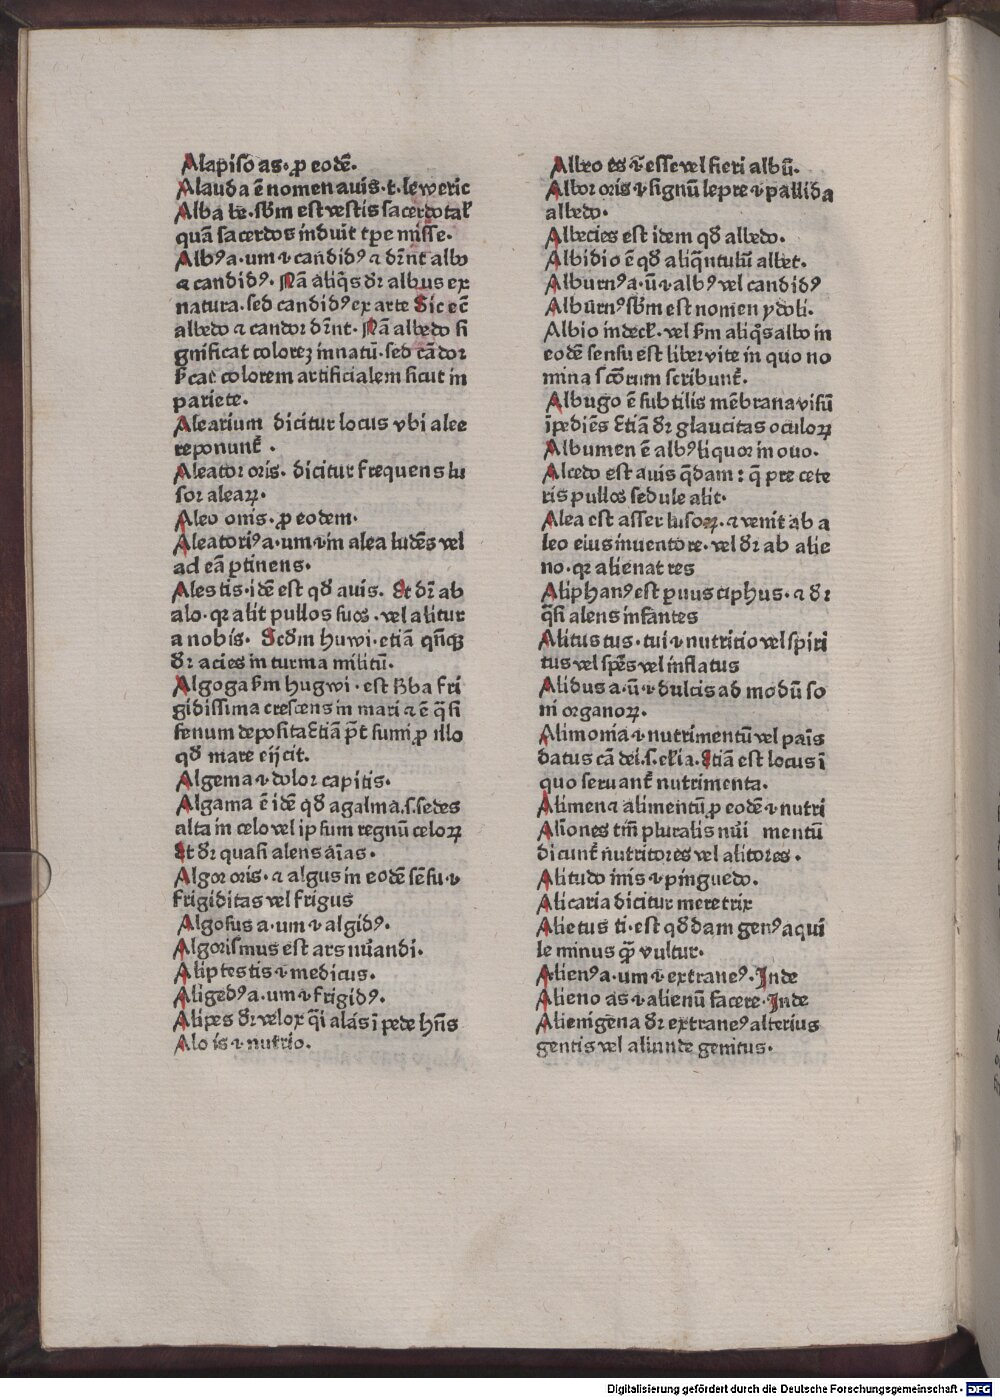 Alapiso as· ꝓ eodē.
Alauda ē nomen auis·t·leweric
Alba be·sƀm est vestis sacerdotaƚ
quā sacerdos induit tꝑe misse·
Albꝰ a·um ⁊ candidꝰ ⁊ dr̄nt albo
⁊ candidꝰ· Nā aliq̄s dr̄ albus ex
natura·sed candidꝰ ex arte Sic eē
albedo ⁊ candor dr̄nt· Nā albedo si
gnificat colorez innatū·sed cādor
ẜcat colorem artificialem sicut in
pariete·
Alearium dicitur locus vbi alee
reponunt̄ ·
Aleator oris· dicitur frequens lu
sor alearꝝ·
Aleo onis· ꝓ eodem·
Aleatoriꝰ a·um ⁊ in alea ludēs vel
ad eā ꝑtinens·
Ales tis·idē est qd̄ auis· Et dr̄ ab
alo·qꝛ alit pullos suos·vel alitur
a nobis· Scd̄m huwi·etiā qn̄qꝫ
dr̄ acies in turma militū·
Algoga ẜm hugwi·est h̄ba fri
gidissima crescens in mari ⁊ ē q̄si
fenum deposita Etiā p̄t sumi ꝓ illo
qd̄ mare eijcit·
Algema ⁊ dolor capitis·
Algama ē idē qd̄ agalma·s·sedes
alta in celo vel ipsum regnū celoꝝ
Et dr̄ quasi alens aīas·
Algor oris·⁊ algus in eodē sēsu·⁊
frigiditas vel frigus
Algosus a·um ⁊ algidꝰ·
Algorismus est ars nūandi·
Aliptes tis ⁊ medicus·
Aligedꝰ a·um ⁊ frigidꝰ·
Alipes dr̄ velox q̄i alas ī pede hn̄s
Alo is ⁊ nutrio·
Albeo es ⁊ esse vel fieri albū·
Albor oris ⁊ signū lepre ⁊ pallida
albedo·
Albecies est idem qd̄ albedo·
Albidio ē qd̄ aliq̄ntulū albet·
Alburnꝰ a·ū ⁊ albꝰ vel candidꝰ
Alburnꝰ sƀm est nomen ydoli·
Albio indecƚ·vel ẜm aliq̄s albo in
eodē sensu est liber vite in quo no
mina sc̄orum scribunt̄·
Albugo ē subtilis mēbrana visū
īpediēs Etiā dr̄ glaucitas oculorꝝ
Albumen ē albꝰ liquor in ouo·
Alcedo est auis q̄dam: q̄ pre cete
ris pullos sedule alit·
Alea est asser lusorꝝ·⁊ venit ab a
leo eius inuentore·vel dr̄ ab alie
no·qꝛ alienat res
Aliphanꝰ est ꝑuus ciphus·⁊ dr̄
q̄si alens infantes
Alitus tus·tui ⁊ nutritio vel spiri
tus vel spēs vel inflatus
Alidus a·ū ⁊ dulcis ad modū so
ni organorꝝ·
Alimonia ⁊ nutrimentū vel panis
datus cā dei·s·elīa·Etiā est locus ī
quo seruant̄ nutrimenta·
Alimen ⁊ alimentū ꝓ eodē ⁊ nutri
Aliōnes tm̄ pluralis nūi mentū
dicunt̄ nutritores vel alitores·
Alitudo inis ⁊ pinguedo·
Alicaria dicitur meretrix
Alietus ti·est qd̄dam genꝰ aqui
le minus q̄ȝ vultur·
Alienꝰ a·um ⁊ extraneꝰ·Inde
Alieno as ⁊ alienū facere·Inde
Alienigena dr̄ extraneꝰ alterius
gentis vel aliunde genitus·
Digitalisierung gefördert durch die Deutsche Forschungsgemeinschaft - DFG